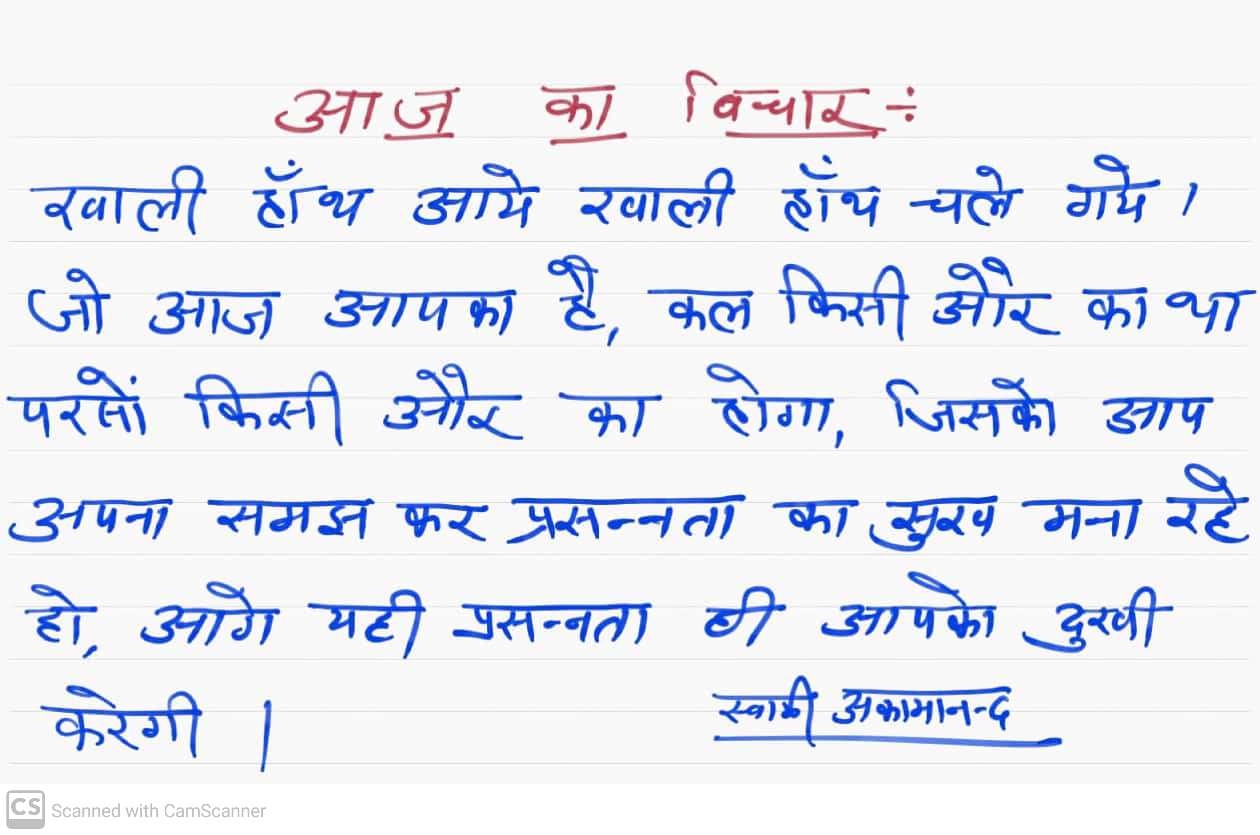 आज का विचार ÷
खाली हाँथ आये खाली हाँथ चले गये ।
जो आज आपका है, कल किसी और का था
परसों किसी और का होगा, जिसको आप
अपना समझ कर प्रसन्नता का सुख मना रहे
हो, आगे यही प्रसन्नता ही आपको दुखी
करेगी |
स्वामी अकामानन्द
CS Scanned with CamScanner